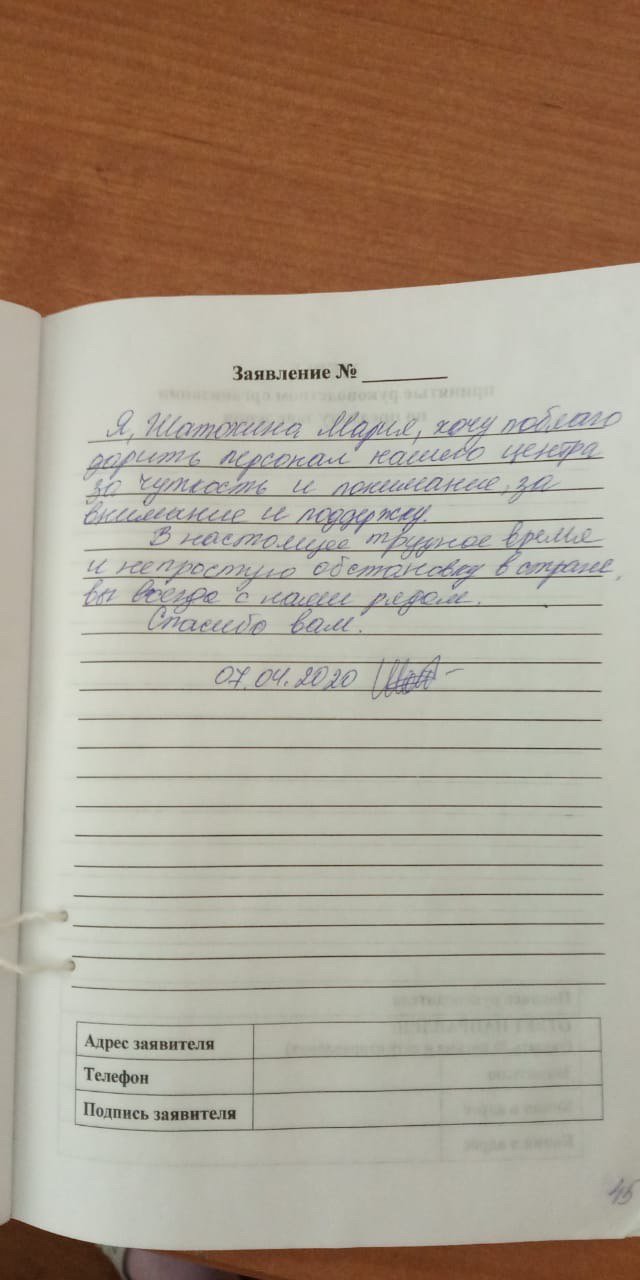 Заявление № ________
Я, Шатохина Мария, хочу поблаго
дарить персонал нашего центра
за чуткость и понимание, за
внимание и поддержку.
В настоящее трудное время
и непростую обстановку в стране,
вы всегда с нами рядом.
Спасибо вам.
07.04.2020
Адрес заявителя
Телефон
Подпись заявителя
45